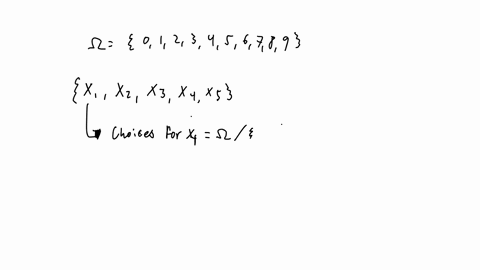 Ω = { 0, 1, 2, 3, 4, 5, 6, 7, 8, 9 }
{ X1, X2, X3, X4, X5 }
Choices for X1 = Ω / {